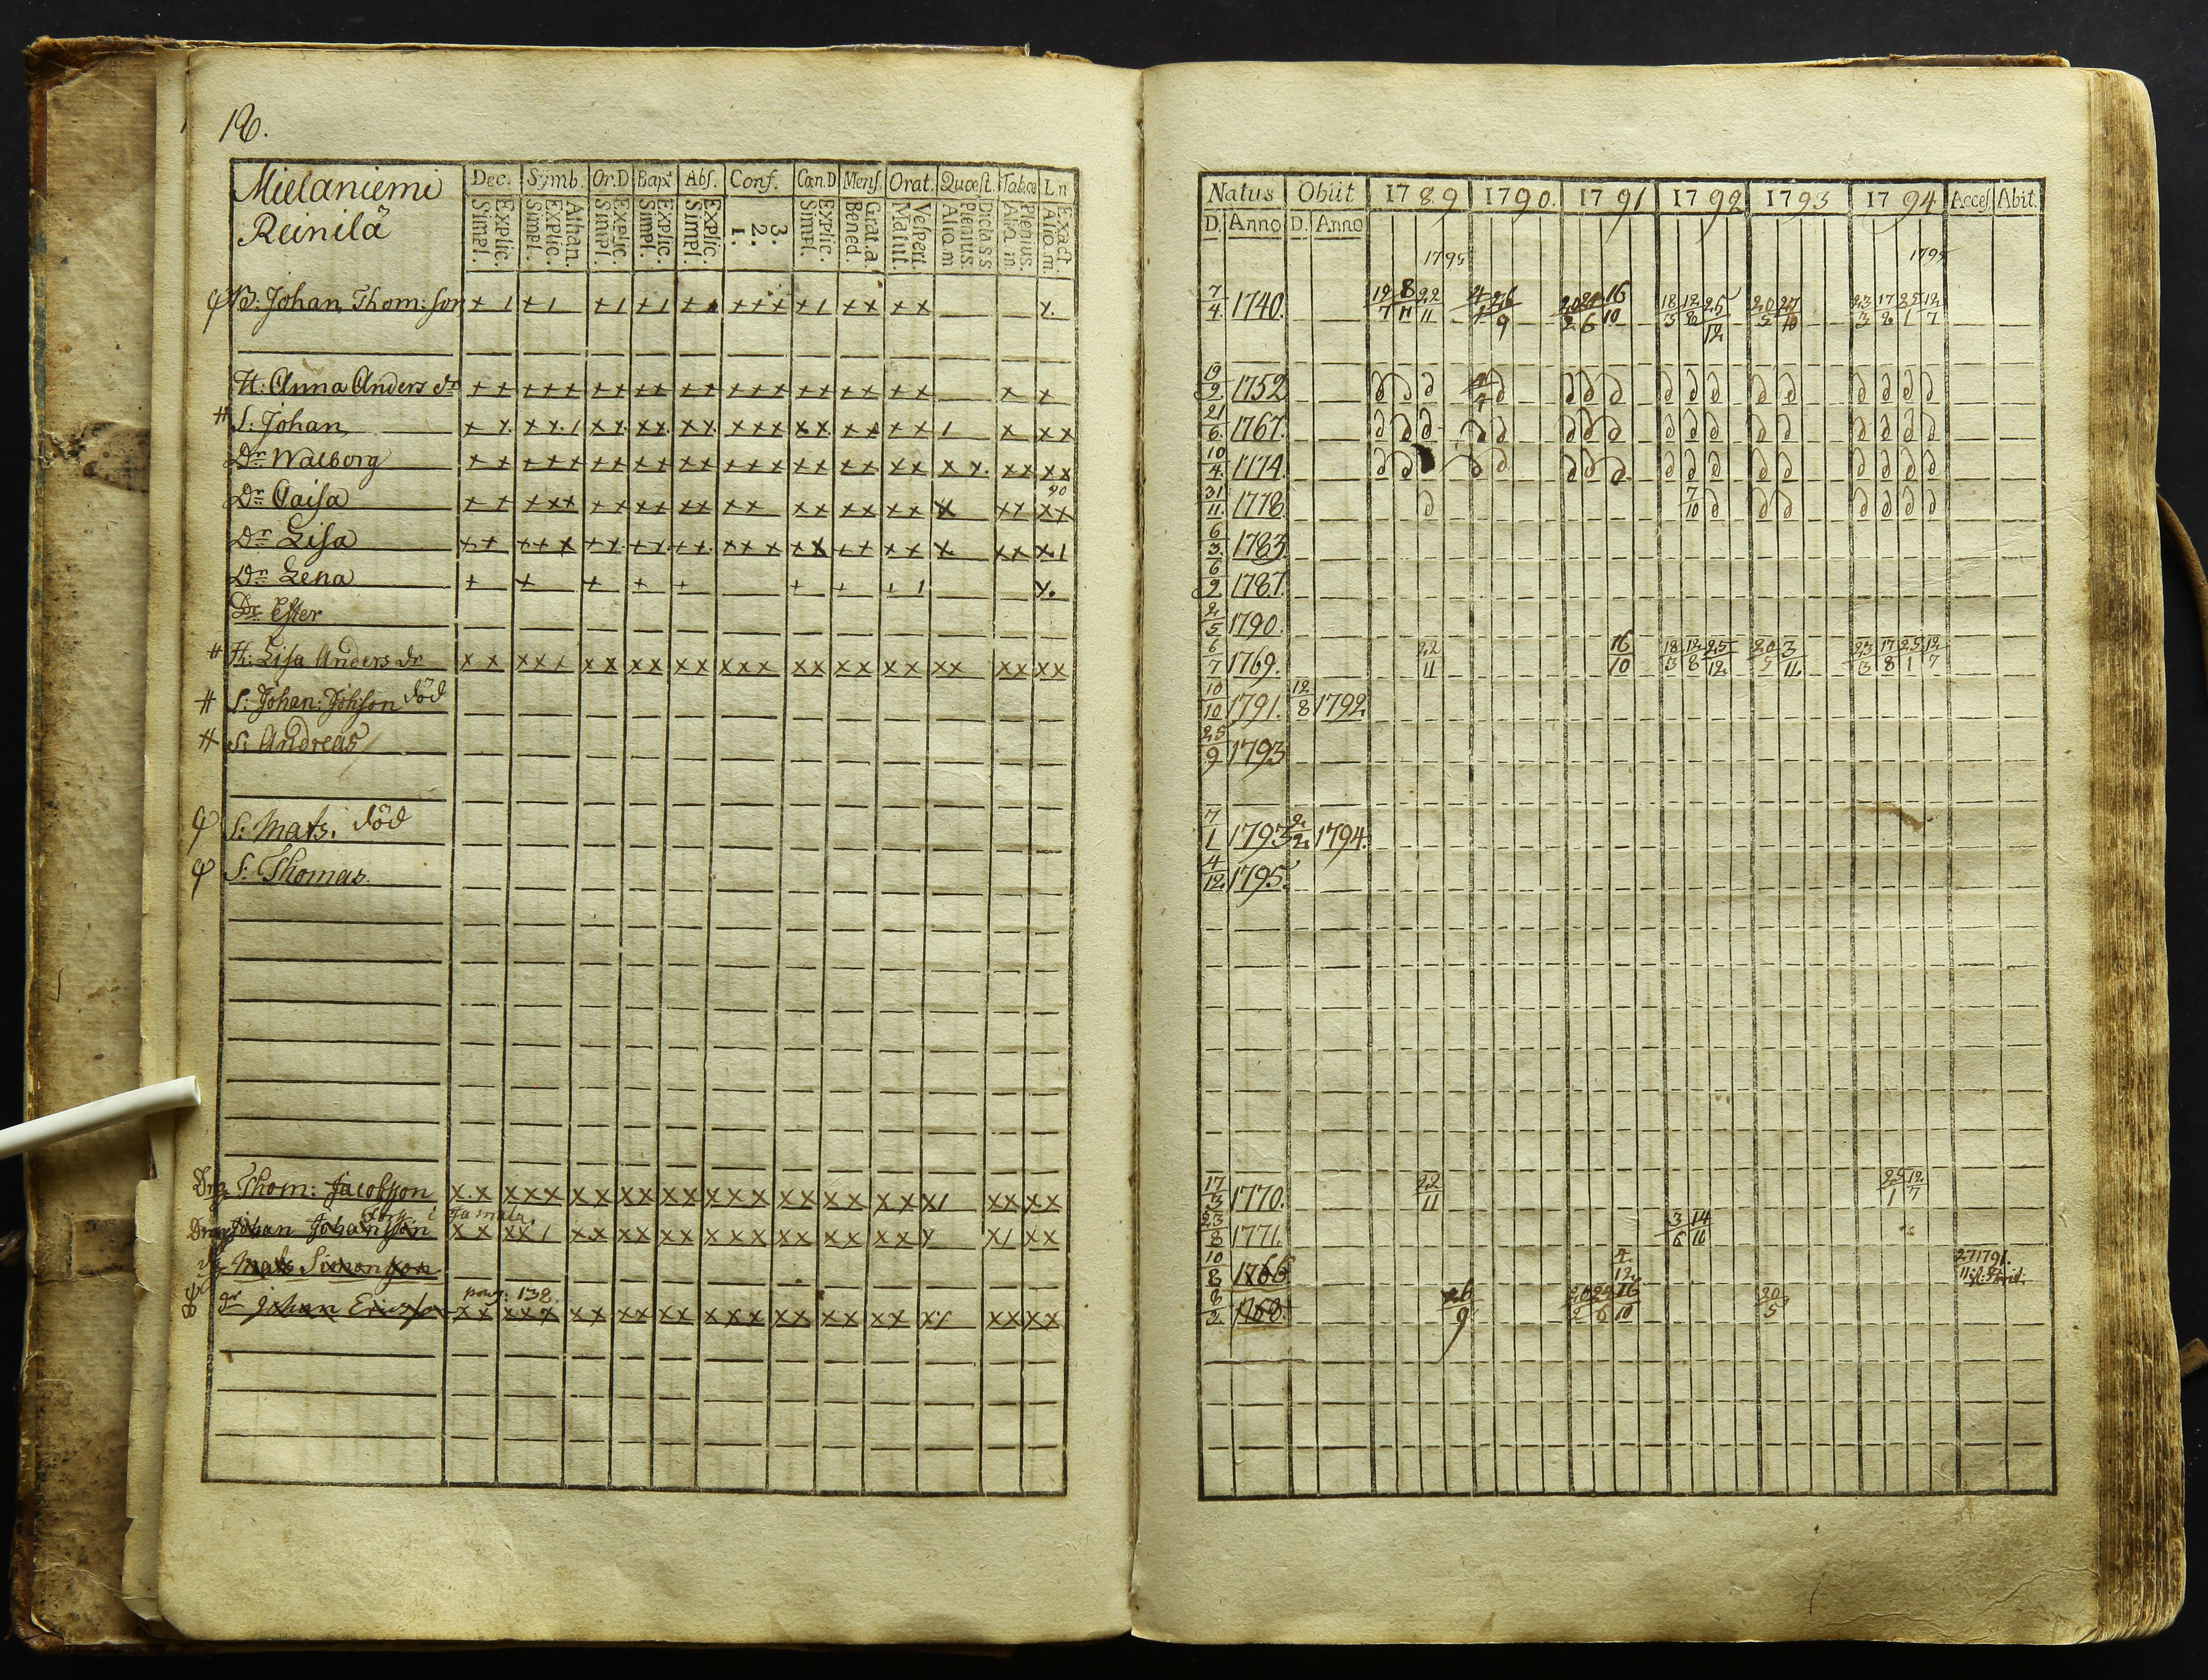 16.
Mielaniemi
Reinilä
Dec. Symb. Or.D Bapt Abs. Conf. Cœn.D Mens. Orat. Quæst. Tab.œ L.n
Explic. Simpl. Athan. Explic. Simpl. Explic. Simpl. Explic. Simpl. Explic. Simpl. 3. 2. 1. Explic. Simpl. Grat. a. Bened. Vesperi. Matut. Dicta ss Plenius. Aliq m Plenius. Aliq m Exact. Aliq. m.
Natus Obiit 1789 1790. 1791 1792 1793 1794 Acces. Abit.
D. Anno D. Anno
1795 1795
B: Johan Thom: son 7/4 1740. 12/7 8/11 22/11 26/9 16/10 18/3 12/8 25/12 20/5 23/3 17/8 25/1 12/7
H: Anna Anders dr 19/9 1752
S: Johan 21/6. 1767.
Dr Walborg 10/4. 1774.
Dr Caisa 90 31/11. 1778. 7/10
Dr Lisa 6/3. 1783.
Dr Lena 6/9. 1787.
Dr Ester 2/5 1790.
H: Lisa Anders dr 6/7 1769. 22/11 16/10 18/3 12/8 25/12 20/5 3/11. 23/3 17/8 25/1 12/7
S: Johan: Johsson död 10/10 1791. 12/8 1792
S: Andreas 25/9 1793
S: Mats. död 7/1 1793 2/2 1794.
S: Thomas. 4/12. 1795.
Drg Thom: Jacobsson 17/3 1770. 22/11 25/1 12/7
Johan Johansson 23/8 1771. 3/6 14/11
Mats Simonsson 10/8 1766 4/12.
pag: 138.
dr Johan Ericsson 8/2 1768. 26/9 20/2 24/6 16/10 20/5